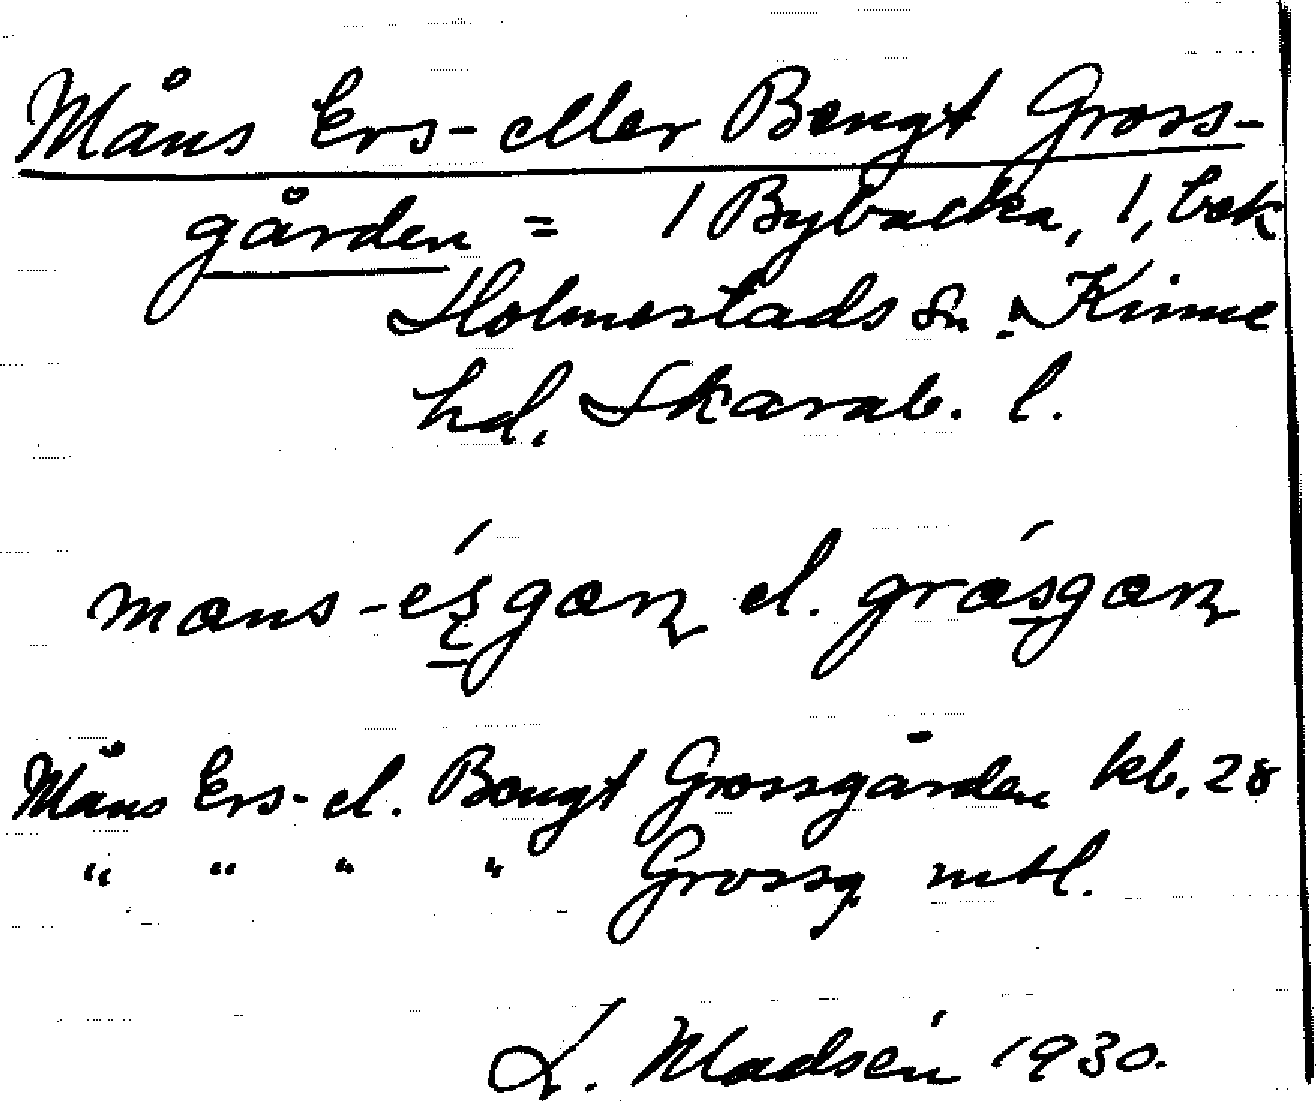 Måns Ers- eller Bengt Gross-
gården = 1 Bybacka, 1, bek
Holmestads sn. Kinne
hd. Skarab. l.
mans-ésgan el. grasgan
Måns Ers- el. Bengt Grossgården kb. 28
" " " " Grossg mtl.
L. Madsén 1930.